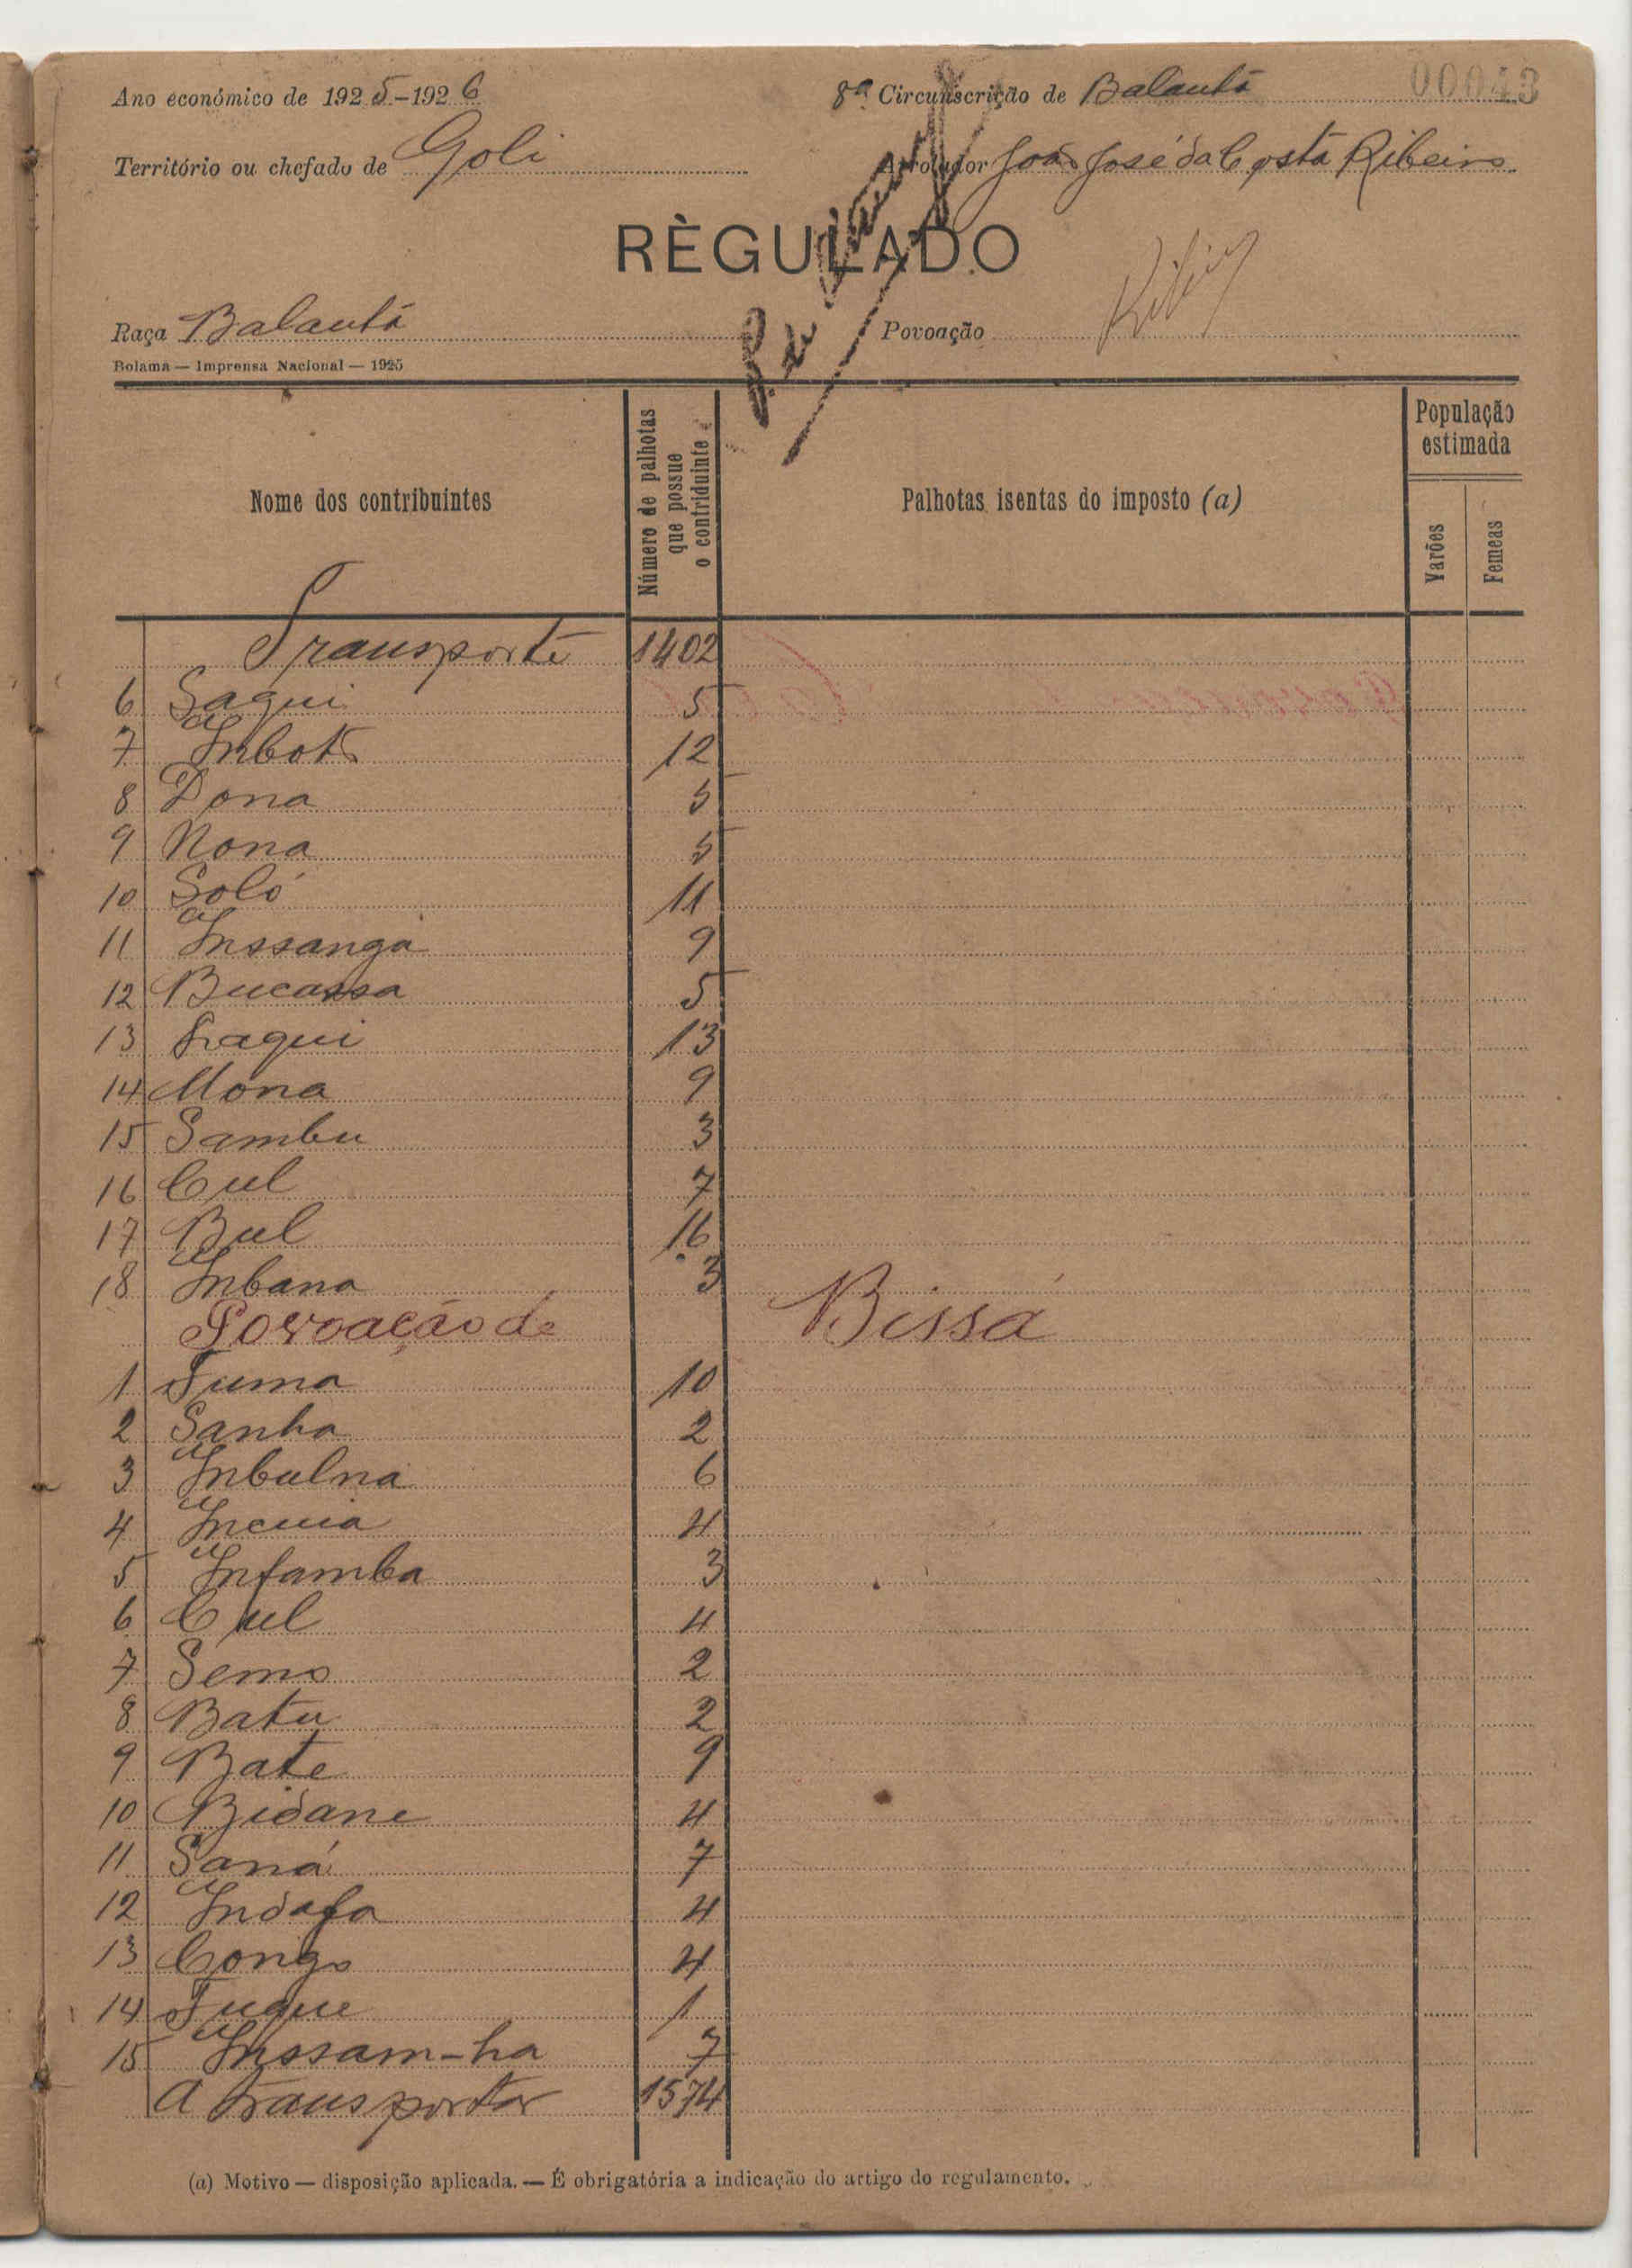 00043
Ano económico de 1925-1926
8ª Circunscrição de Balantá
Território ou chefado de Goli
Arrolador João José da Costa Ribeiro
RÈGULADO
Raça Balantá
Povoação
Bolama — Imprensa Nacional — 1925
Nome dos contribuintes
Número de palhotas que possue o contriduinte
Palhotas isentas do imposto (a)
População estimada
Varões
Femeas
Transporte 1402
6 Saqui 5
7 Inbots 12
8 Dona 5
9 Nona 5
10 Soló 11
11 Inssanga 9
12 Bucassa 5
13 Saqui 13
14 Mona 9
15 Sambu 3
16 Cul 7
17 Bul 16
18 Inbana 3
Povoação de Bissá
1 Tuma 10
2 Sanha 2
3 Inbulna 6
4 Incuia 4
5 Infamba 3
6 Cul 4
7 Semo 2
8 Batu 2
9 Bate 9
10 Bidane 4
11 Saná 7
12 Indafa 4
13 Congo 4
14 Tuque 1
15 Inssam-ha 7
A transportar 1574
(a) Motivo — disposição aplicada. — É obrigatória a indicação do artigo do regulamento.